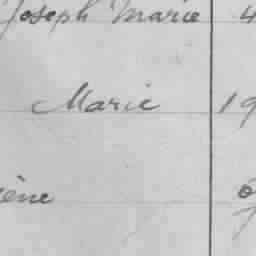 Joseph Marie 4
Marie 19
ène